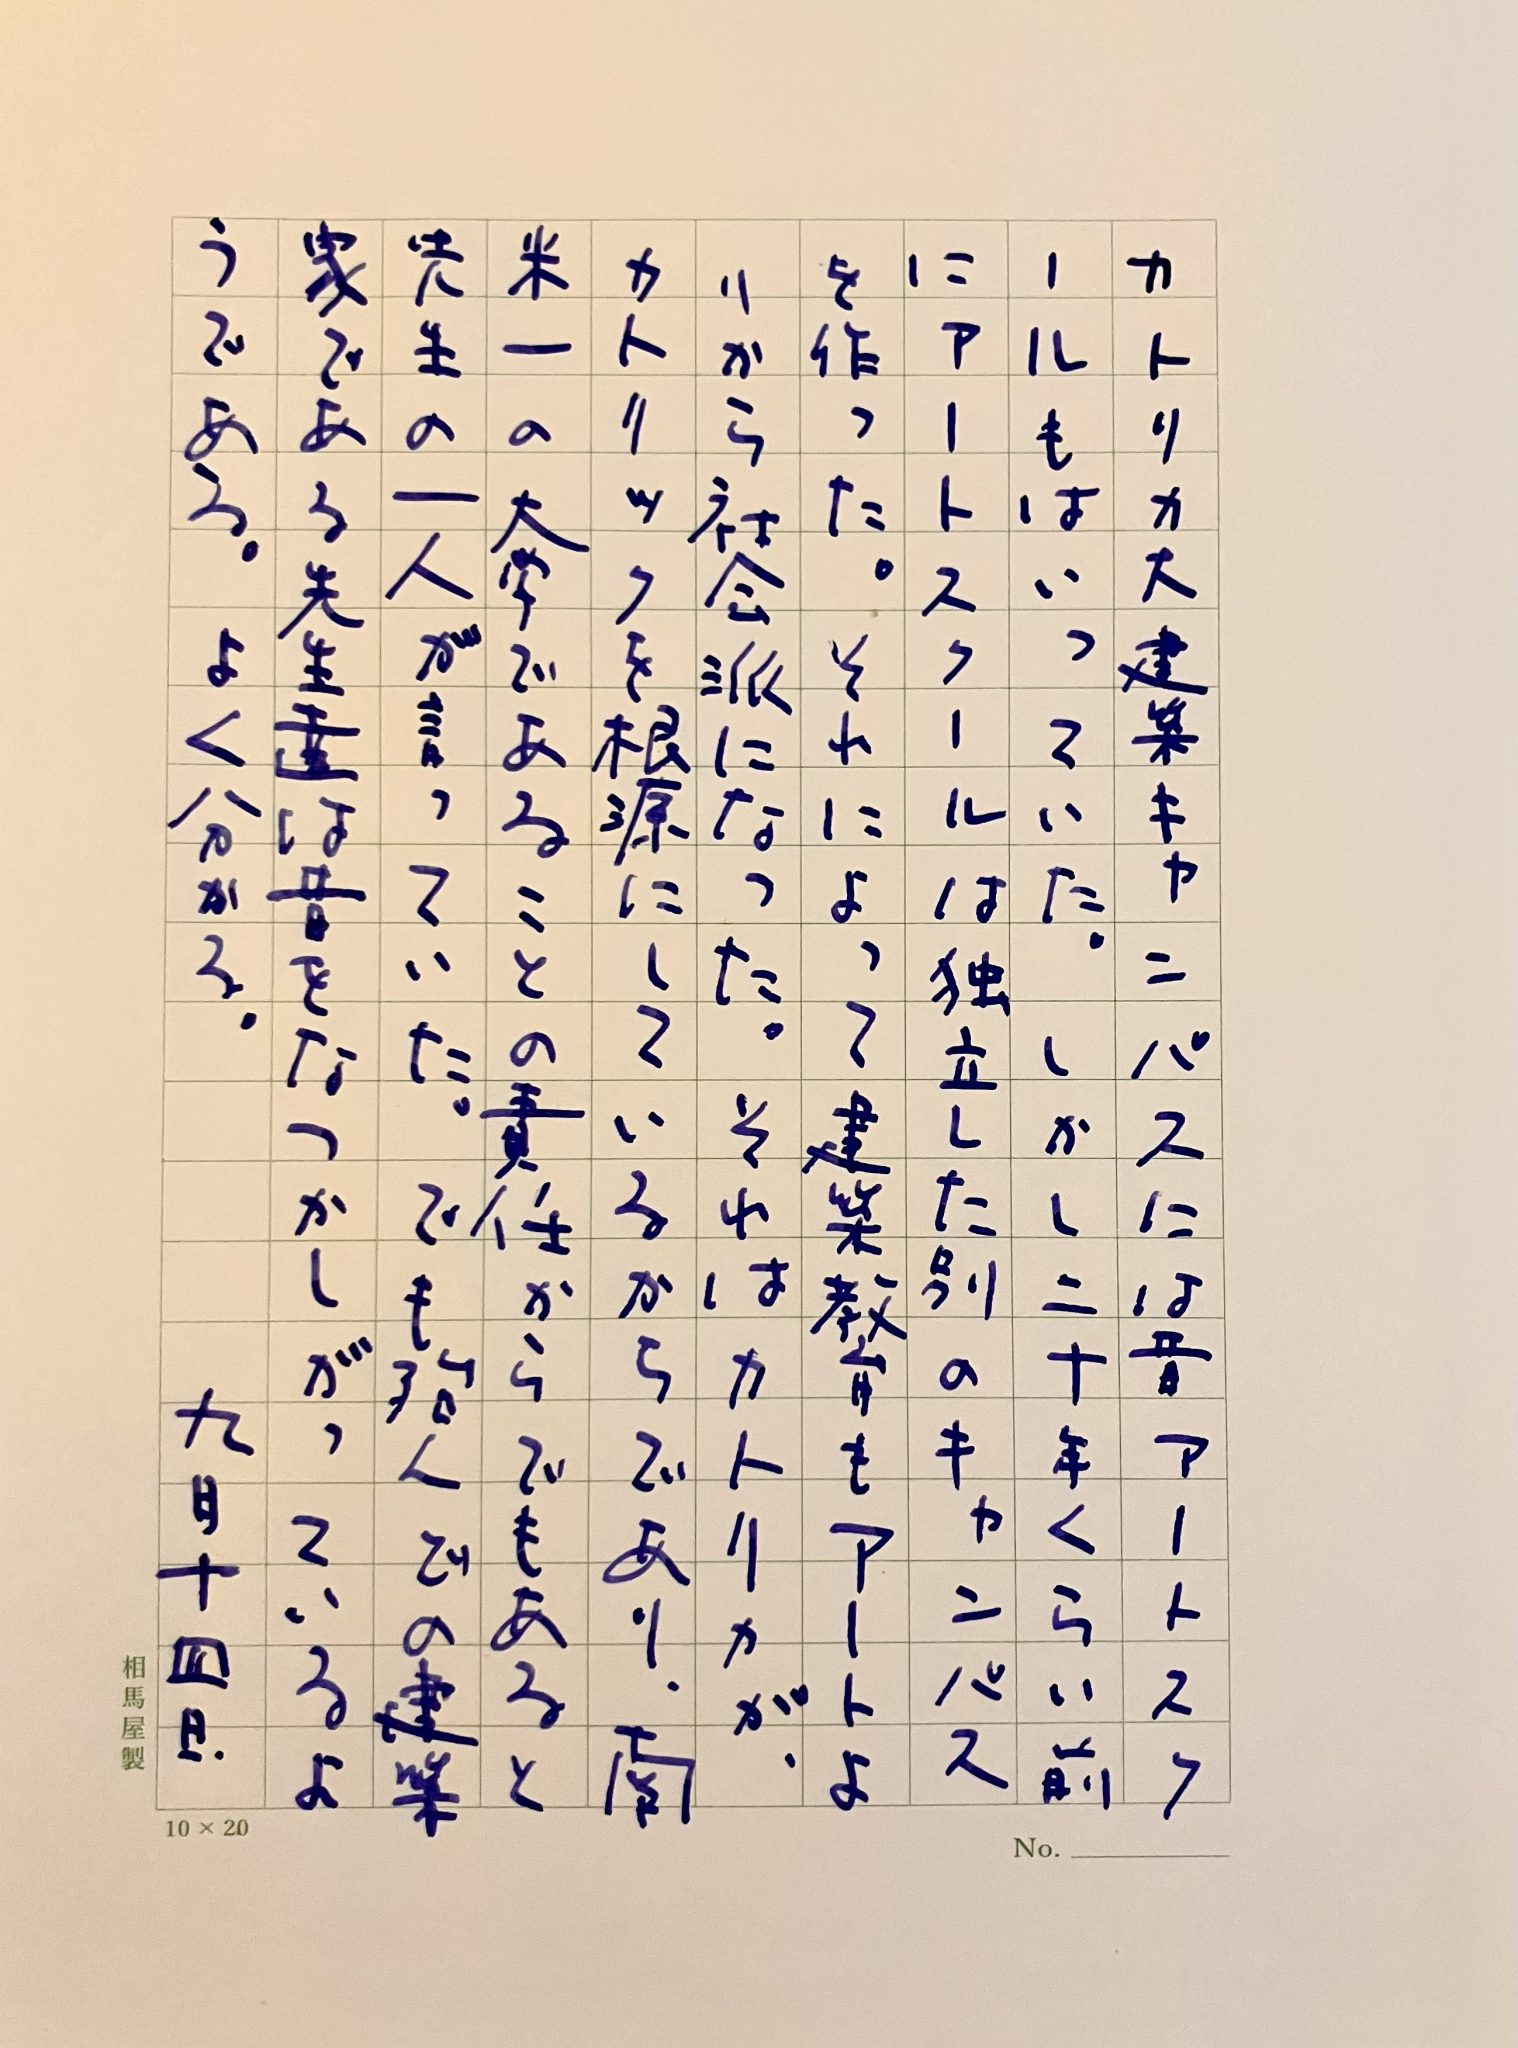 カトリカ大建築キャニパスには昔アートスク
ールもはいっていた。しかし二十年くらい前
にアートスクールは独立した別のキャンバス
を作った。それによって建築教育もアートよ
りから社会派になった。それはカトリカが、
カトリックを根源にしているからであり、南
米一の大学であることの責任からでもあると
先生の一人が言っていた。でも殆んどの建築
家である先生達は昔をなつかしがっているよ
うである。よく分かる。
九月十四日.
相馬屋製
10×20
No.